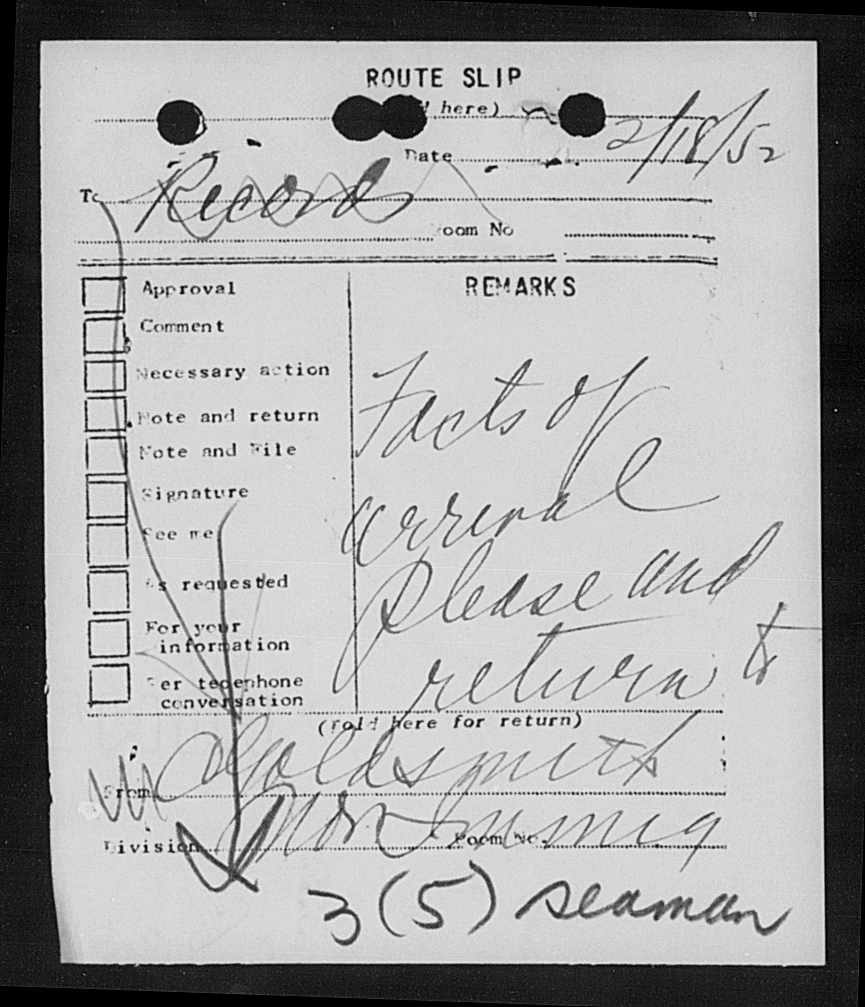 ROUTE SLIP
here)
Date 2/18/52
To Records
Room No
REMARKS
Approval
Comment
Necessary action
Note and return
Note and File
Signature
See me
As requested
For your
information
Per telephone
conversation
Facts of
arrival
please and
return to
(Fold here for return)
From Goldsmith
Division Non Immig Room No.
3 (5) seaman